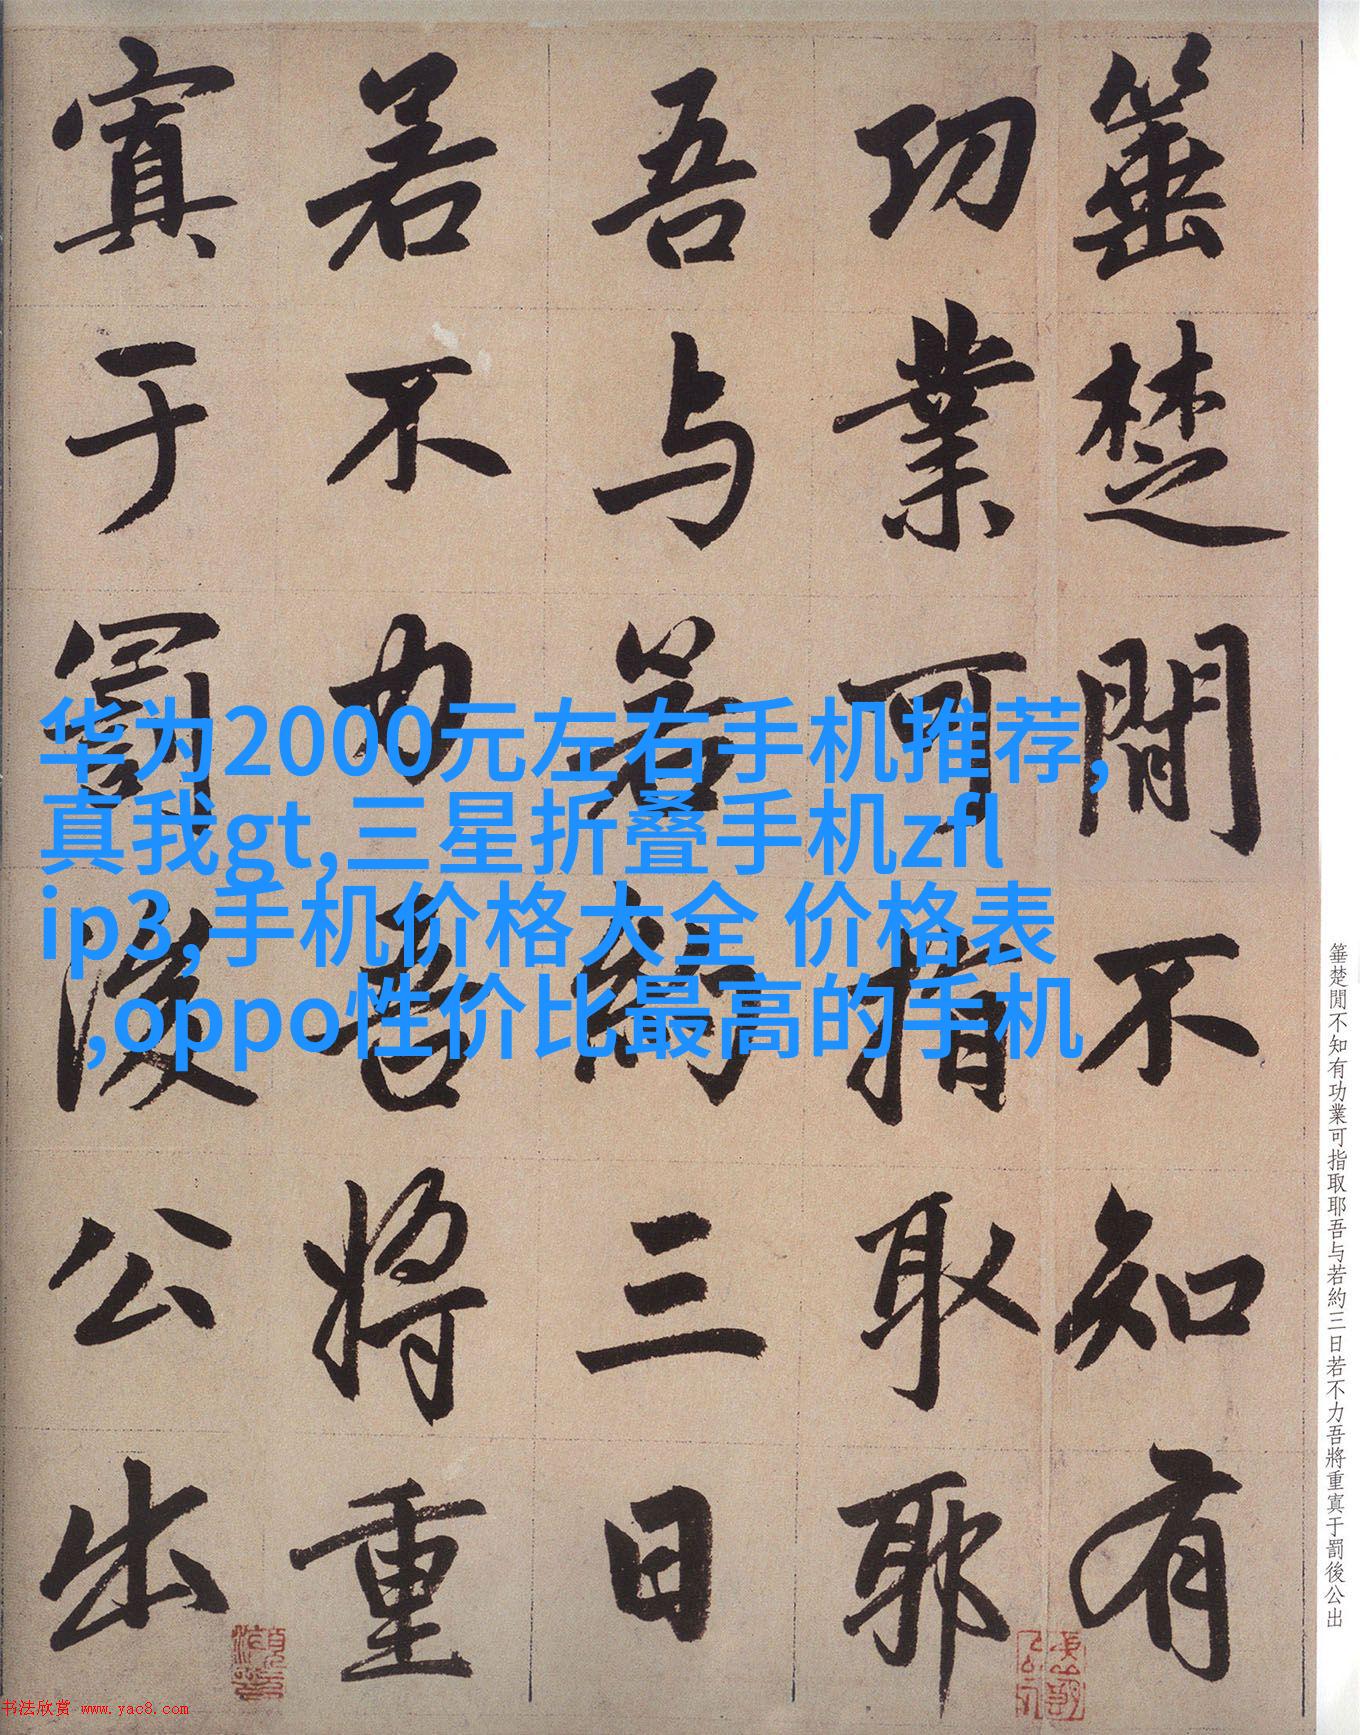 箠楚閒不知有
功業可指取耶
吾与若約三日
若不力吾將重
寘于罰後公出
华为2000元左右手机推荐,
真我gt,三星折叠手机zfl
ip3,手机价格大全 价格表
,oppo性价比最高的手机
箠楚閒不知有功業可指取耶吾与若約三日若不力吾將重寘于罰後公出
书法欣赏 www.yac8.com